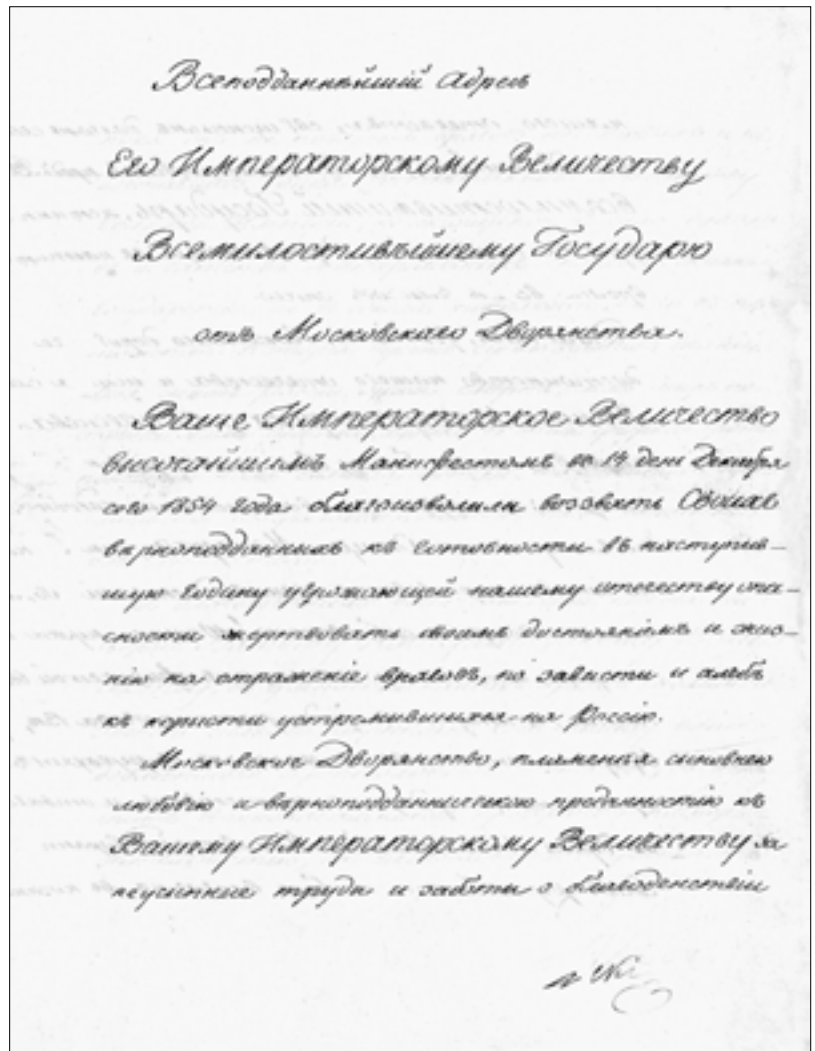 Всеподданнѣйшій Адресъ
Его Императорскому Величеству
Всемилостивѣйшему Государю
отъ Московскаго Дворянства.
Ваше Императорское Величество
высочайшимъ Манифестомъ въ 14 день Декабря
сего 1854 года благоизволили воззвать Своихъ
вѣрноподданныхъ къ готовности въ наступив-
шую годину угрожающей нашему отечеству опа-
сности жертвовать своимъ достояніемъ и жиз-
нію на отраженіе враговъ, по зависти и алчбѣ
къ корысти устремившихся на Россію.
Московское Дворянство, пламенѣя сыновнею
любовію и вѣрноподданническою преданностію къ
Вашему Императорскому Величеству за
неусыпные труды и заботы о благоденствіи